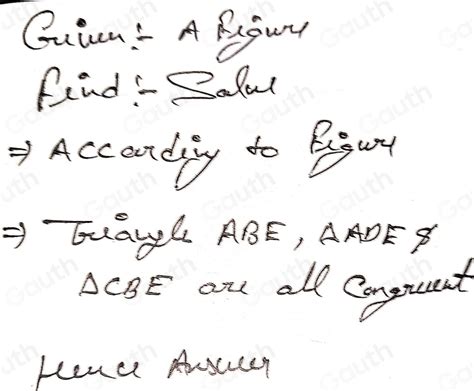 Given:- A Figure
Find:- Solve
⇒ According to Figure
⇒ Triangle ABE, ΔADE &
ΔCBE are all Congruent
Hence Answer